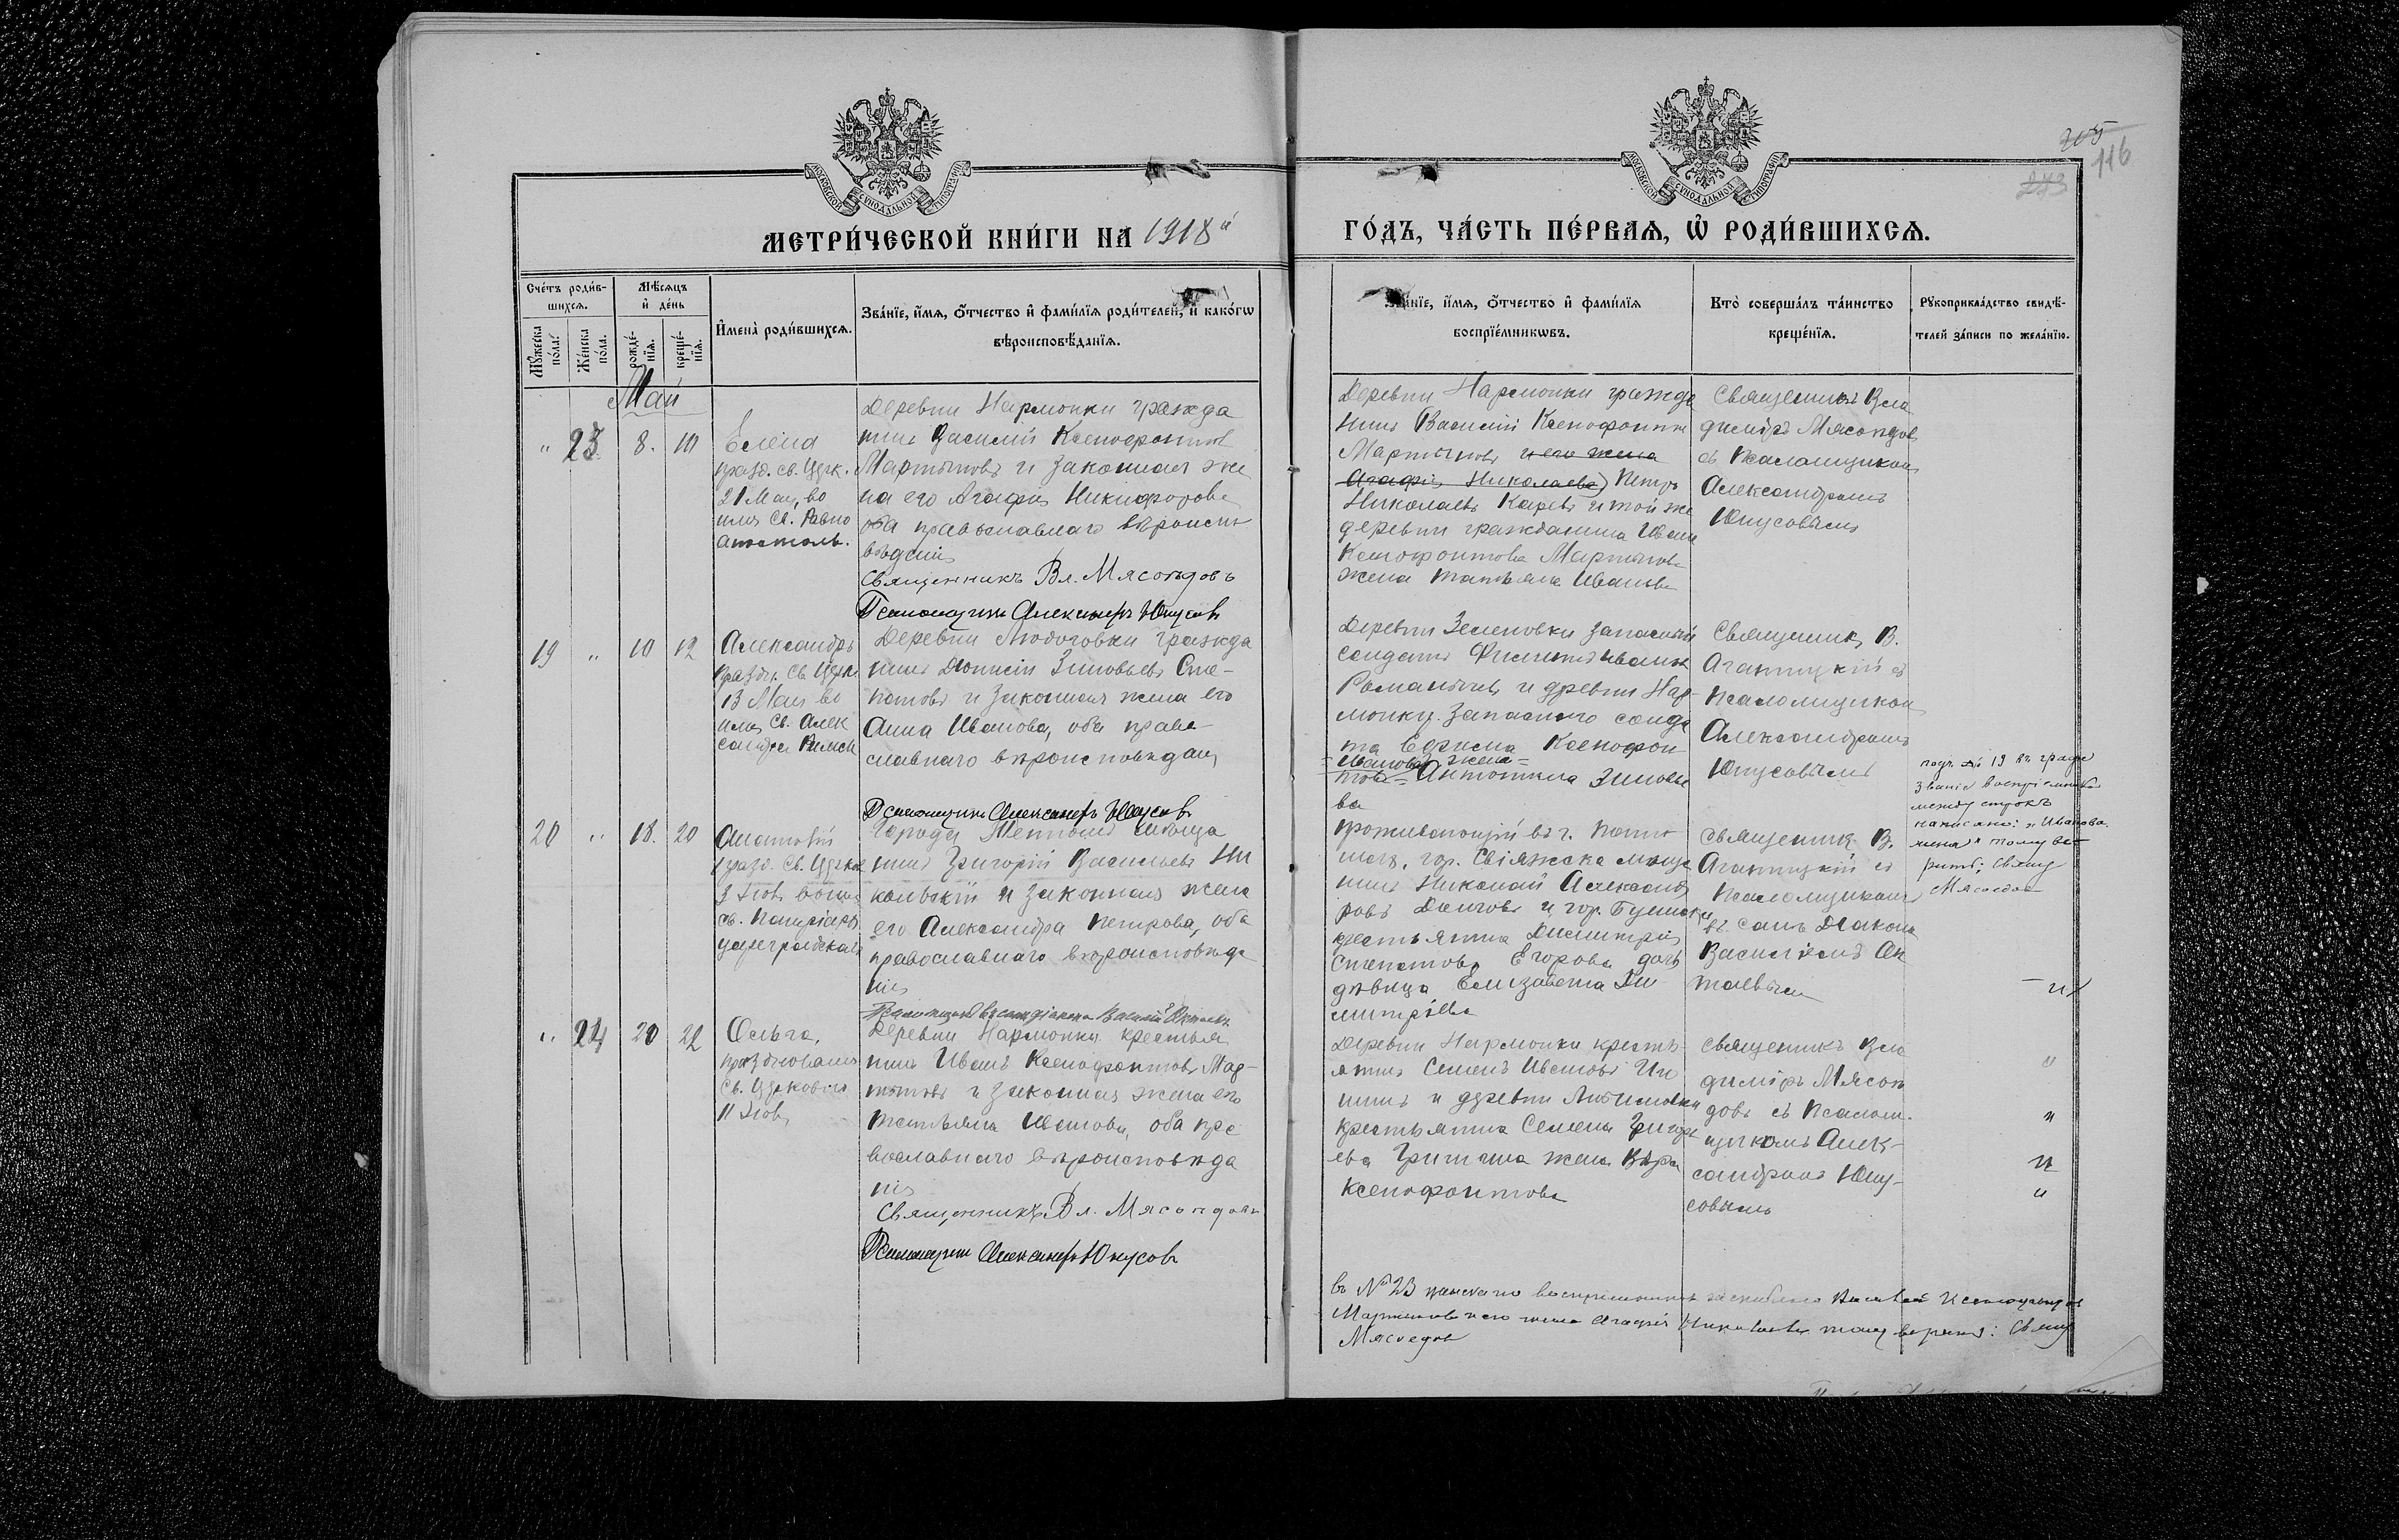 МОСКОВСКОЙ СѴНОДАЛЬНОЙ ТИПОГРАФІИ
МОСКОВСКОЙ СѴНОДАЛЬНОЙ ТИПОГРАФІИ
205
116
273
МЕТРИ́ЧЕСКОЙ КНИ́ГИ НА 1918й
ГО́ДЪ, ЧА́СТЬ ПЕ́РВАѦ, Ѡ҆ РОДИ́ВШИХСѦ.
Сче́тъ роди́в-
шихсѧ.
Мꙋ́жеска
по́ла.
Же́нска
по́ла.
Мѣ́сѧцъ
и҆ де́нь
рожде́-
нїѧ.
креще́-
нїѧ.
И҆мена̀ роди́вшихсѧ.
Зва́нїе, и҆́мѧ, ѻ҆́тчество и҆ фами́лїѧ роди́телей, и҆ како́гѡ
вѣроисповѣ́данїѧ.
Зва́нїе, и҆́мѧ, ѻ҆́тчество и҆ фами́лїѧ
воспрїе́мникѡвъ.
Кто̀ соверша́лъ та́инство
креще́нїѧ.
Рꙋкоприкла́дство свидѣ́-
телей за́писи по жела́нїю.
Май
" 23 8. 10
Елена
празд. св. Црк.
21 Мая, во
имя Св. Равно
апостольн.
Деревни Нармонки гражда
нинъ Василій Ксенофонтовъ
Мартыновъ и законная же
на его Агафія Никифорова
оба православнаго вѣроиспо
вѣданія
Священникъ Вл. Мясоѣдовъ
Псаломщикъ Александръ Юнусовъ
Деревни Нармонки гражда
нинъ Василій Ксенофонтовъ
Мартыновъ и его жена
Агафія Николаева) Петръ
Николаевъ Каревъ и той же
деревни гражданина Ивана
Ксенофонтова Мартынова
жена Татьяна Иванова
Священникъ Вла
диміръ Мясоѣдовъ
съ Псаломщикомъ
Александромъ
Юнусовымъ
19 " 10 12
Александръ
празд. Св. Церкв
13 Мая во
имя Св. Алек
сандра Римск
Деревни Любоговки гражда
нинъ Діонисій Зиновьевъ Сте-
пановъ и законная жена его
Анна Иванова, оба право
славнаго вѣроисповѣданія
Псаломщикъ Александръ Юнусовъ
Деревни Зеленовки запасный
солдатъ Филиппъ Ивановъ
Романычевъ и деревни Нар-
монки запасного солда
та Ефрема Ксенофон
= Иванова жена =
това Антонина Зиновье
ва
Священникъ В.
Агатицкій съ
Псаломщикомъ
Александромъ
Юнусовымъ
подъ № 19 въ графѣ
званіе воспріемниковъ
между строкъ
написано: "Иванова
жена" тому вѣ-
рить; Свящ
Мясоедов
20 " 18. 20
Анатолій
празд. Св. Церков
3 Іюля во имя
св. Патріарха
Цареградскаго
Города мѣща
нинъ Григорій Васильевъ Ни
кольскій и законная жена
его Александра Петрова, оба
православнаго вѣроисповѣда
нія
Псаломщикъ въ санѣ діакона Василій
проживающій въ г.
гор. Свіяжска мѣща
нинъ Николай Александ
ровъ Долговъ и гор.
крестьянина Димитрія
Степанова Егорова дочь
дѣвица Елизавета Ди
митріева
Священникъ В.
Агатицкій съ
Псаломщикомъ
въ санѣ Діакона
Василіемъ
" 24 20 22
Ольга,
празднованіе
Св. Церковію
11 Іюля
Деревни Нармонки крестья
нинъ Иванъ Ксенофонтовъ Мар-
тыновъ и законная жена его
Татьяна Иванова, оба пра
вославнаго вѣроисповѣда
нія
Священникъ Вл. Мясоѣдовъ
Псаломщикъ Александръ Юнусовъ
Деревни Нармонки кресть-
янинъ Семенъ Ивановъ
и деревни
крестьянина Семена Григорь
ева жена Вѣра
Ксенофонтова
Священникъ Вла
диміръ Мясоѣ
довъ съ Псалом-
щикомъ Алек-
сандромъ Юну-
совымъ
въ № 23
Мартыновъ и его жена Агафія Николаева тому вѣрить: Свящ
Мясоедов